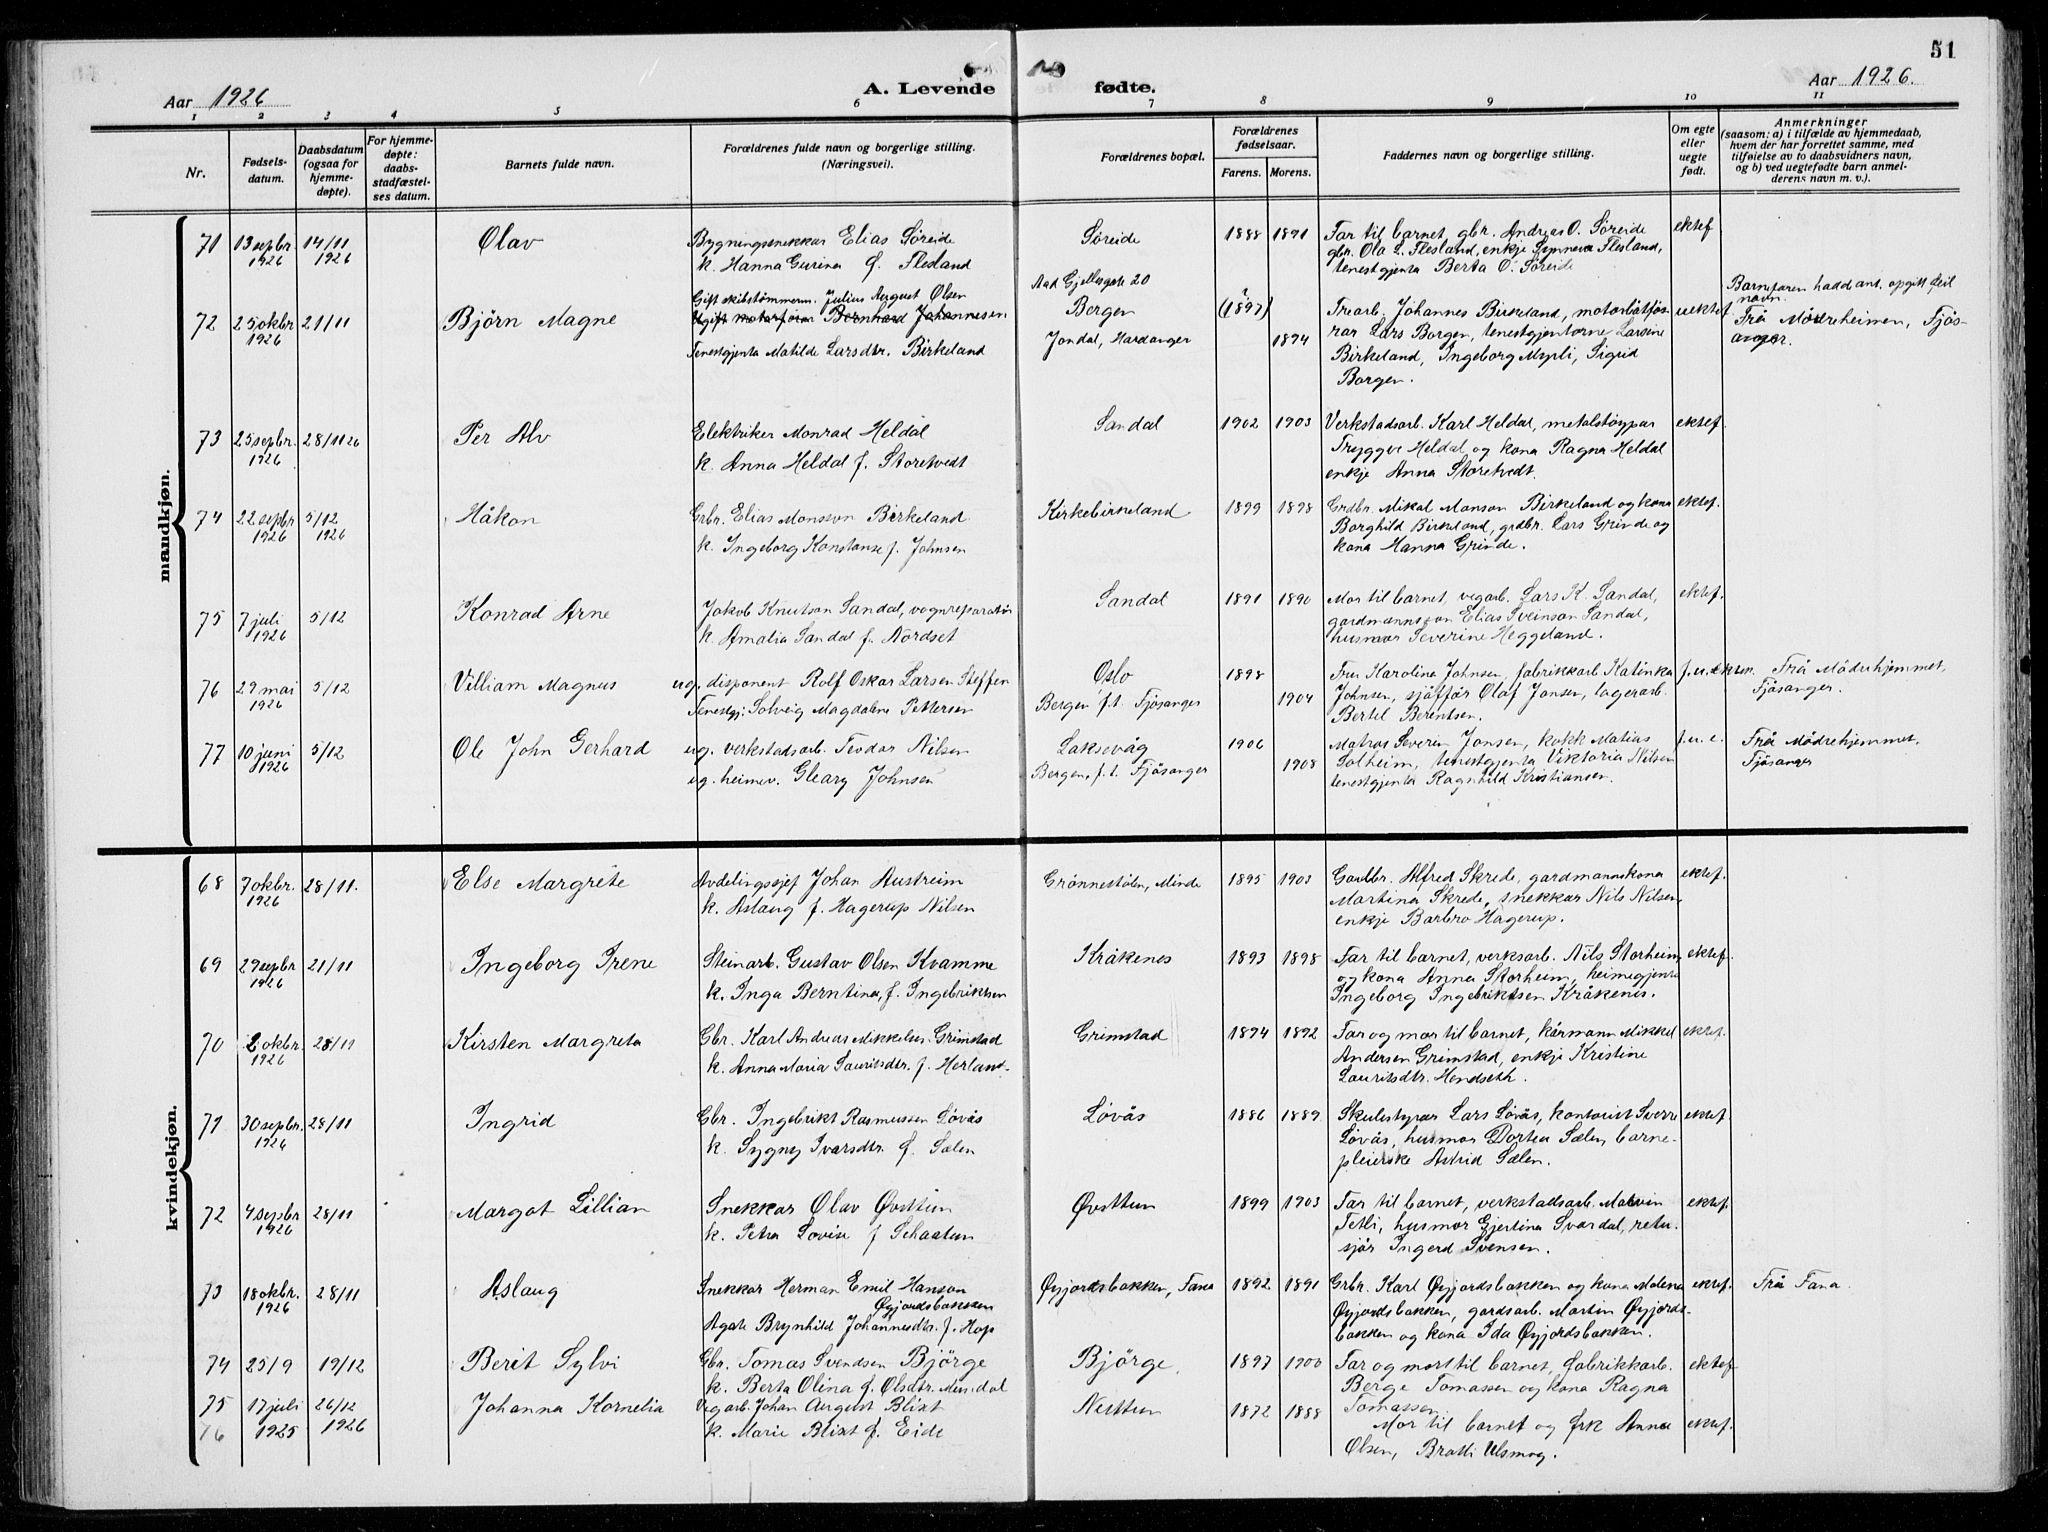 51
Aar 1926
A. Levende fødte.
Aar 1926.
1 2 3 4 5 6 7 8 9 10 11
Nr.
Fødsels-
datum.
Daabsdatum
(ogsaa for
hjemme-
døpte).
For hjemme-
døpte:
daabs-
stadfæstel-
ses datum.
Barnets fulde navn.
Forældrenes fulde navn og borgerlige stilling.
(Næringsvei).
Forældrenes bopæl.
Forældrenes
fødselsaar.
Farens. Morens.
Faddernes navn og borgerlige stilling.
Om egte
eller
uegte
født.
Anmerkninger
(saasom: a) i tilfælde av hjemmedaab,
hvem der har forrettet samme, med
tilføielse av to daabsvidners navn,
og b) ved uegtefødte barn anmel-
derens navn m. v.).
mandkjøn.
71 13 sepbr. 1926 14/11 1926 Olav
Bygningssnekkar Elias Søreide
k. Hanna Gurina f. Flesland
Søreide 1888 1891
Far til barnet, gbr. Andreas O. Søreide
gbr. Ola L. Flesland, enkje Synneva Flesland,
tenestgjenta Berta O. Søreide
ektef
72 25 okbr 1926 21/11 Bjørn Magne
Gift skibstømmerm. Julius August Olsen
Ugift motorfører Bernhard Johannesen
Tenestgjenta Matilde Larsdtr. Birkeland
Aad Gjellesgate 20
Bergen
Jondal, Hardanger
(1897) 1894
Trearb. Johannes Birkeland, motorbåtfø-
rar Lars Borgen, tenestgjentorne Larsine
Birkeland, Ingeborg Myrli, Sigrid
Borgen.
uektef.
Barnefaren hadd ant. opgitt feil
navn.
Frå Mödreheimen, Fjös-
anger.
73 25 sepbr. 1926 28/11 26 Per Alv
Elektriker Monrad Heldal
k. Anna Heldal f. Storetvedt
Sandal 1902 1903
Verkstadsarb. Karl Heldal, metalstøypar
Tryggve Heldal og kona Ragna Heldal
enkje Anna Storetvedt.
ektef.
74 22 sepbr 1926 5/12 1926 Håkon
Grbr. Elias Monsson Birkeland
k. Ingeborg Konstanse f. Johnsen
Kirkebirkeland 1899 1898
Grdbr. Mikal Monson Birkeland og kona
Borghild Birkeland, grdbr. Lars Grinde og
kona Hanna Grinde.
ektef.
75 7 juli 1926 5/12 Konrad Arne
Jakob Knutson Sandal, vognreparatør
k. Amalia Sandal f. Nordset
Sandal 1891 1890
Mor til barnet, vegarb. Lars K. Sandal,
gardmannsson Elias Sveinson Sandal,
husmor Severine Heggeland.
ektef.
76 29 mai 1926 5/12 Villiam Magnus
ug. disponent Rolf Oskar Larsen Steffen
Tenestgj. Solveig Magdalene Pettersen
Oslo
Bergen f.t. Fjösanger
1898 1904
Fru Karolina Johnsen, fabrikkarb. Katinka
Johnsen, sjåffør Olaf Jansen, lagerarb.
Bertil Berentsen.
f.u. ekten.
Frå Mödrehjemmet,
Fjösanger.
77 10 juni 1926 5/12 Ole John Gerhard
ug. verkstadsarb. Teodor Nilsen
ug. heimev. Gleary Johnsen
Laksevåg
Bergen, f.t. Fjösanger
1906 1908
Matros Severin Jonsen, kokk Matias
Solheim, tenestgjenta Viktoria Nilsen
tenestgjenta Ragnhild Kristiansen.
f.u.e.
Frå Mödrehjemmet,
Fjösanger
kvindekjøn.
68 7 okbr. 1926 28/11. Else Margrete
Avdelingssjef Johan Austreim
k. Aslaug f. Hagerup Nilsen
Grønnestølen, Minde 1895 1903
Gardbr. Alfred Skrede, gardmannskona
Martina Skrede, snekkar Nils Nilsen,
enkje Barbro Hagerup.
ektef.
69 29 sepbr 1926 21/11 Ingeborg Irene
Steinarb. Gustav Olsen Kvamme
k. Inga Berntina, f. Ingebriktsen
Kråkenes 1893 1898
Far til barnet, verksarb. Nils Storheim
og kona Anna Storheim, heimegjenta
Ingeborg Ingebriktsen Kråkenes.
ektef.
70 2 okbr. 1926 28/11 Kirsten Margreta
Gbr. Karl Andreas Mikkelsen Grimstad
k. Anna Maria Lauritsdtr. f. Herland.
Grimstad 1894 1892
Far og mor til barnet, kårmann Mikkel
Andersen Grimstad, enkje Kristine
Lauritsdtr. Hendseth.
ektef.
71 30 sepbr. 1926 28/11 Ingrid
Gbr. Ingebrikt Rasmussen Løvås
k. Sygny Ivarsdtr. f. Sælen
Løvås 1886 1889
Skulestyrar Lars Løvås, kontorist Sverre
Løvås, husmor Dortea Sælen, barne-
pleierske Astrid Sælen.
ektef.
72 4 sepbr 1926 28/11 Margot Lillian
Snekkar Olav Øvsttun
k. Petra Lovise f Schaatun
Øvsttun 1899 1903
Far til barnet, verkstadsarb. Malvin
Tetli, husmor Gjertina Svardal, retu-
sjör Ingerd Svensen.
ektef.
73 18 okbr. 1926 28/11 Aslaug
Snekkar Herman Emil Hanson
Øyjordsbakken
Agate Brynhild Johannesdtr. f. Hop
Øyjordsbakken, Fana 1892 1891
Grbr. Karl Øyjordsbakken og kona Malena
Øyjordsbakken, gardsarb. Martin Øyjords-
bakken og kona Ida Øyjordsbakken.
ektef.
Frå Fana.
74 25/9 19/12 Berit Sylvi
Gbr. Tomas Svendsen Bjørge
k. Berta Olina f. Olsdtr. Mundal
Bjørge. 1897 1900
Far og mor til barnet, fabrikkarb.
Berge Tomassen og kona Ragna
Tomassen
ektef
75 17 juli 1925 26/12 1926 Johanna Kornelia
Vegarb. Johan August Blixt
k. Marie Blixt f. Eide
Nesttun 1872 1888
Mor til barnet og frk Anna
Olsen, Bratli Ulsmog.
ektef.
76